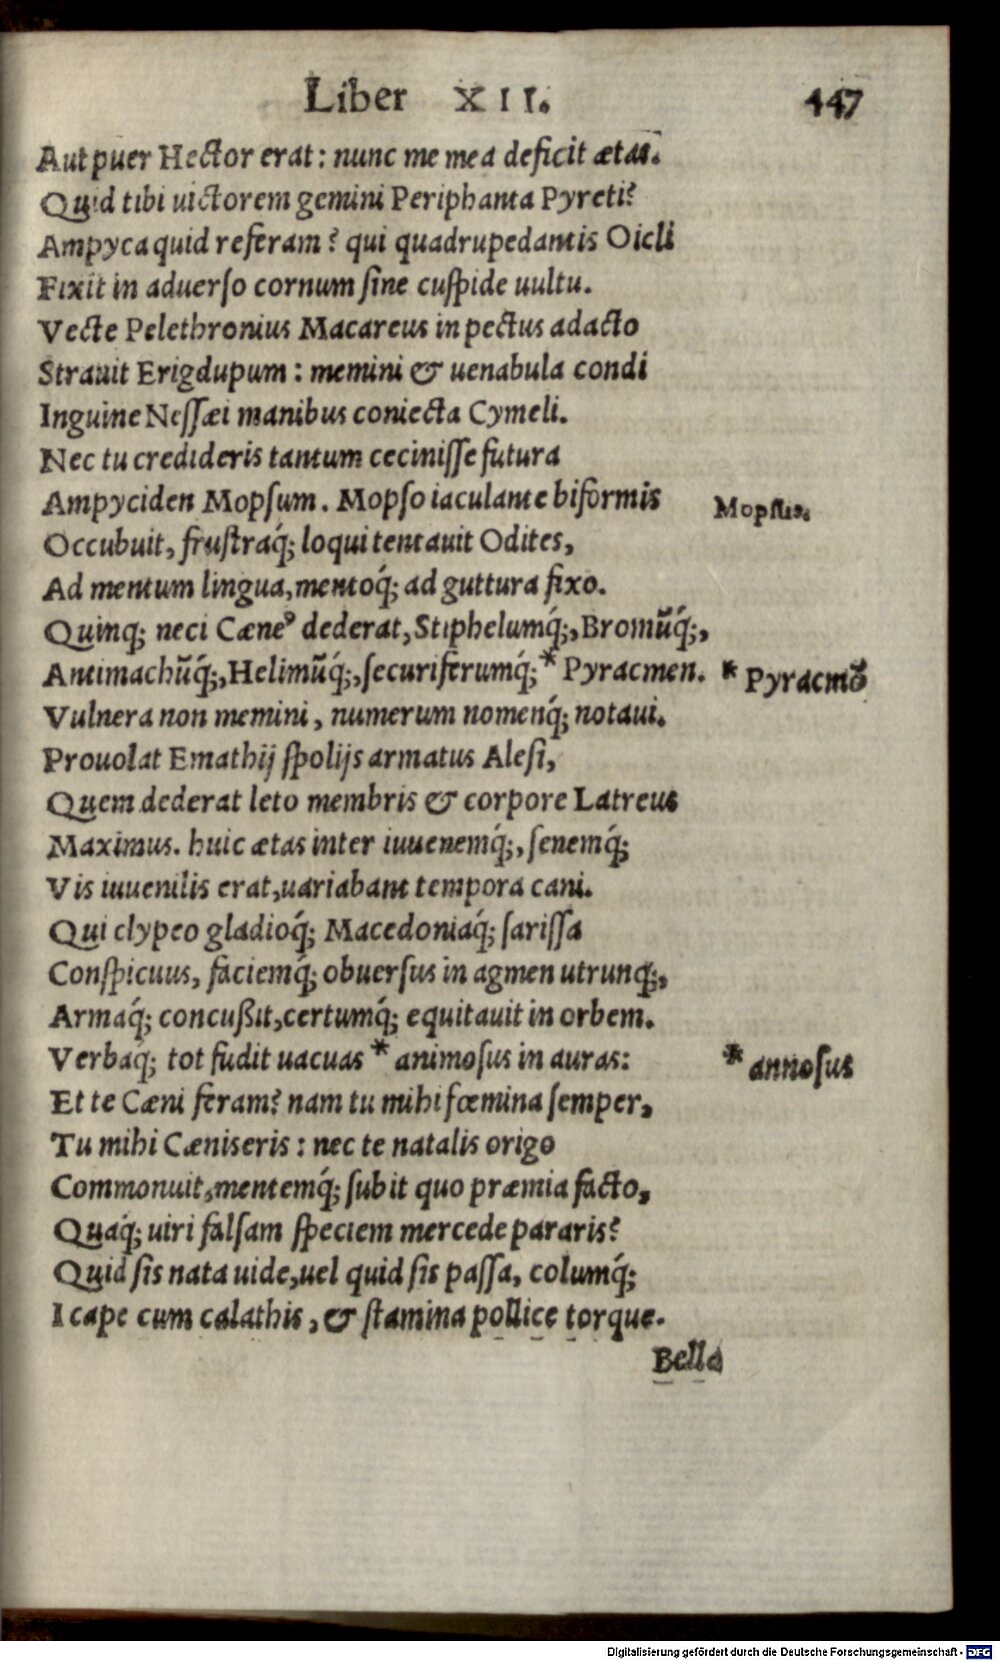 Liber XII. 447
Aut puer Hector erat: nunc me mea deficit ætas.
Quid tibi uictorem gemini Periphanta Pyreti?
Ampyca quid referam? qui quadrupedantis Oicli
Fixit in aduerso cornum sine cuspide uultu.
Vecte Pelethronius Macareus in pectus adacto
Strauit Erigdupum: memini & uenabula condi
Inguine Nessæi manibus coniecta Cymeli.
Nec tu credideris tantum cecinisse futura
Ampyciden Mopsum. Mopso iaculante biformis Mopsus.
Occubuit, frustraq́; loqui tentauit Odites,
Ad mentum lingua, mentoq́; ad guttura fixo.
Quinq; neci Cæneꝰ dederat, Stiphelumq́;, Bromũq́;,
Antimachũq́;, Helimũq́;, securiferumq́; * Pyracmen. * Pyracmõ
Vulnera non memini, numerum nomenq́; notaui.
Prouolat Emathij spolijs armatus Alesi,
Quem dederat leto membris & corpore Latreus
Maximus. huic ætas inter iuuenemq́;, senemq́;
Vis iuuenilis erat, uariabant tempora cani.
Qui clypeo gladioq́; Macedoniaq́; sarissa
Conspicuus, faciemq́; obuersus in agmen utrunq;,
Armaq́; concußit, certumq́; equitauit in orbem.
Verbaq́; tot fudit uacuas * animosus in auras: * annosus
Et te Cæni feram? nam tu mihi fœmina semper,
Tu mihi Cænis eris: nec te natalis origo
Commonuit, mentemq́; subit quo præmia facto,
Quaq́; uiri falsam speciem mercede pararis?
Quid sis nata uide, uel quid sis passa, columq́;
I cape cum calathis, & stamina pollice torque.
Bella
Digitalisierung gefördert durch die Deutsche Forschungsgemeinschaft - DFG